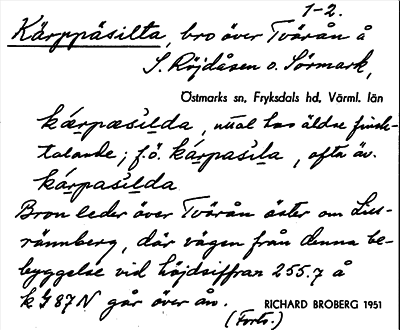 1-2.
Kärppäsilta, bro över Tvärån å
S. Röjdåsen o. Sörmark,
Östmarks sn, Fryksdals hd, Värml. län
kærpæsìlda, uttal hos äldre finsk-
talande; f.ö. kárpasìla, ofta äv.
kárpasìlda
Bron leder över Tvärån öster om Lius-
rännberg, där vägen från denna be-
byggelse vid höjdsiffran 255.7 å
k G 87 N går över ån.
RICHARD BROBERG 1951
(Forts.)